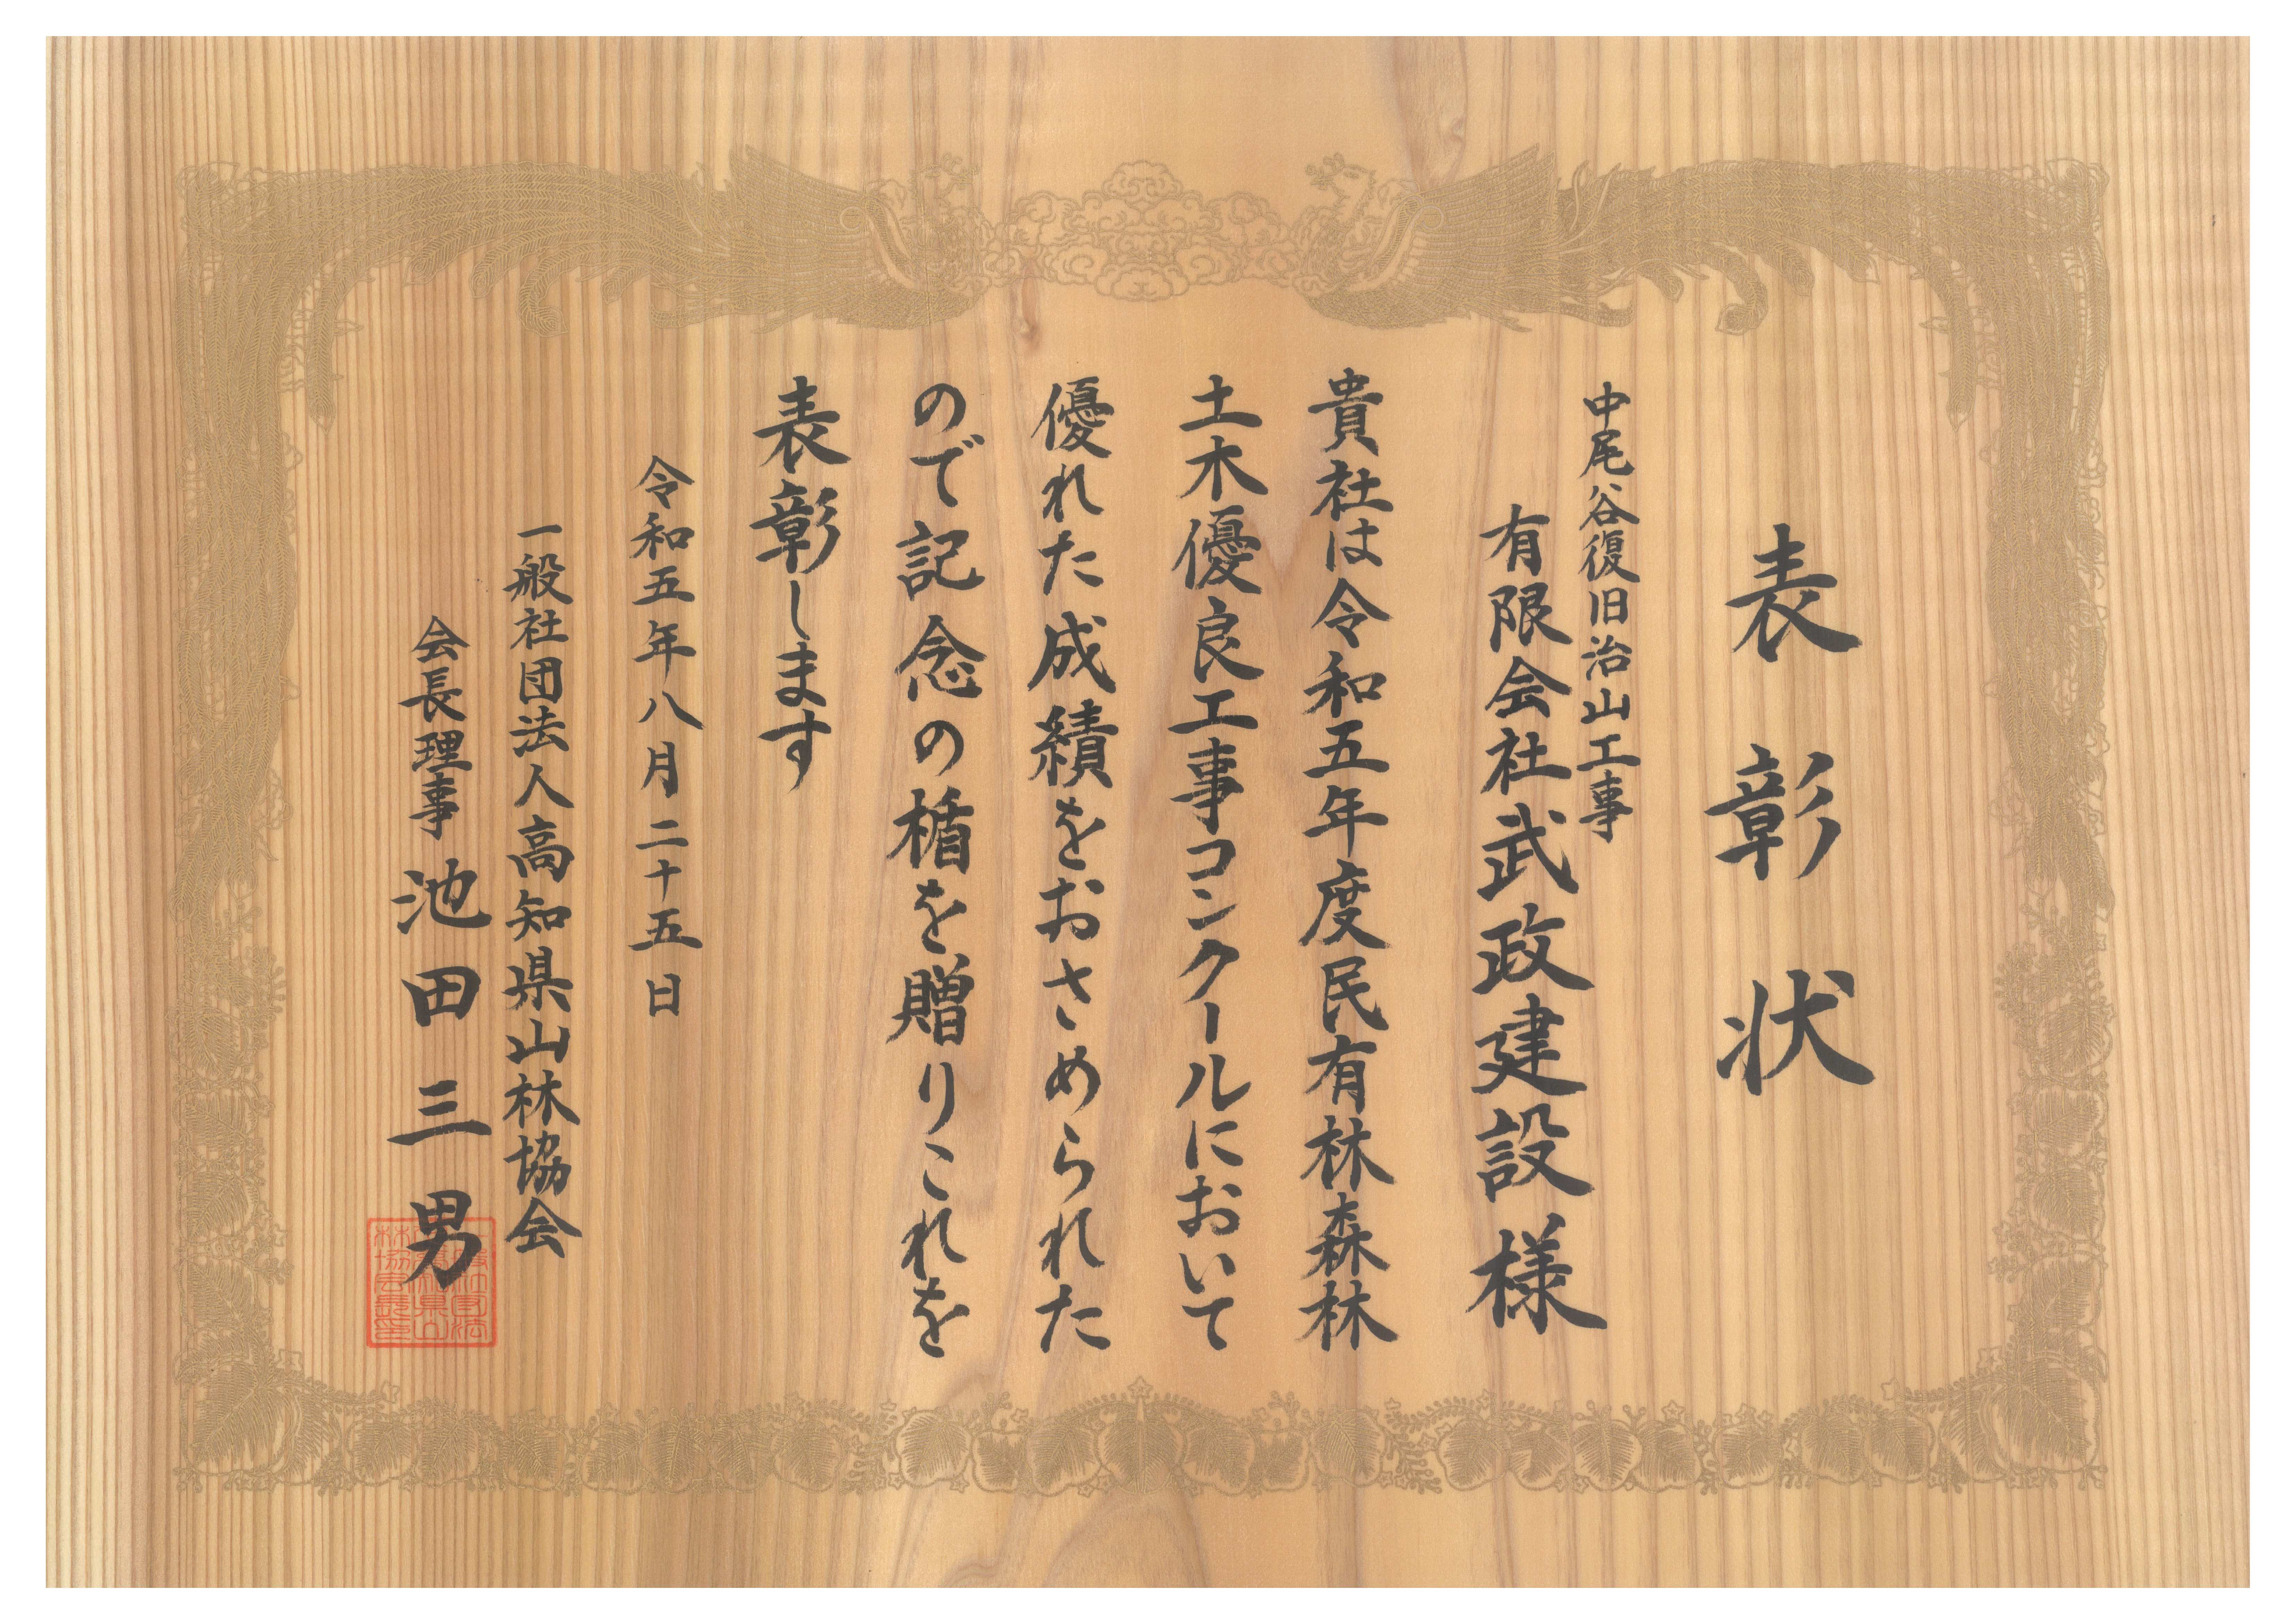 表彰状
中尾谷復旧治山工事
有限会社武政建設様
貴社は令和五年度民有林森林
土木優良工事コンクールにおいて
優れた成績をおさめられた
ので記念の楯を贈りこれを
表彰します
令和五年八月二十五日
一般社団法人高知県山林協会
会長理事池田三男